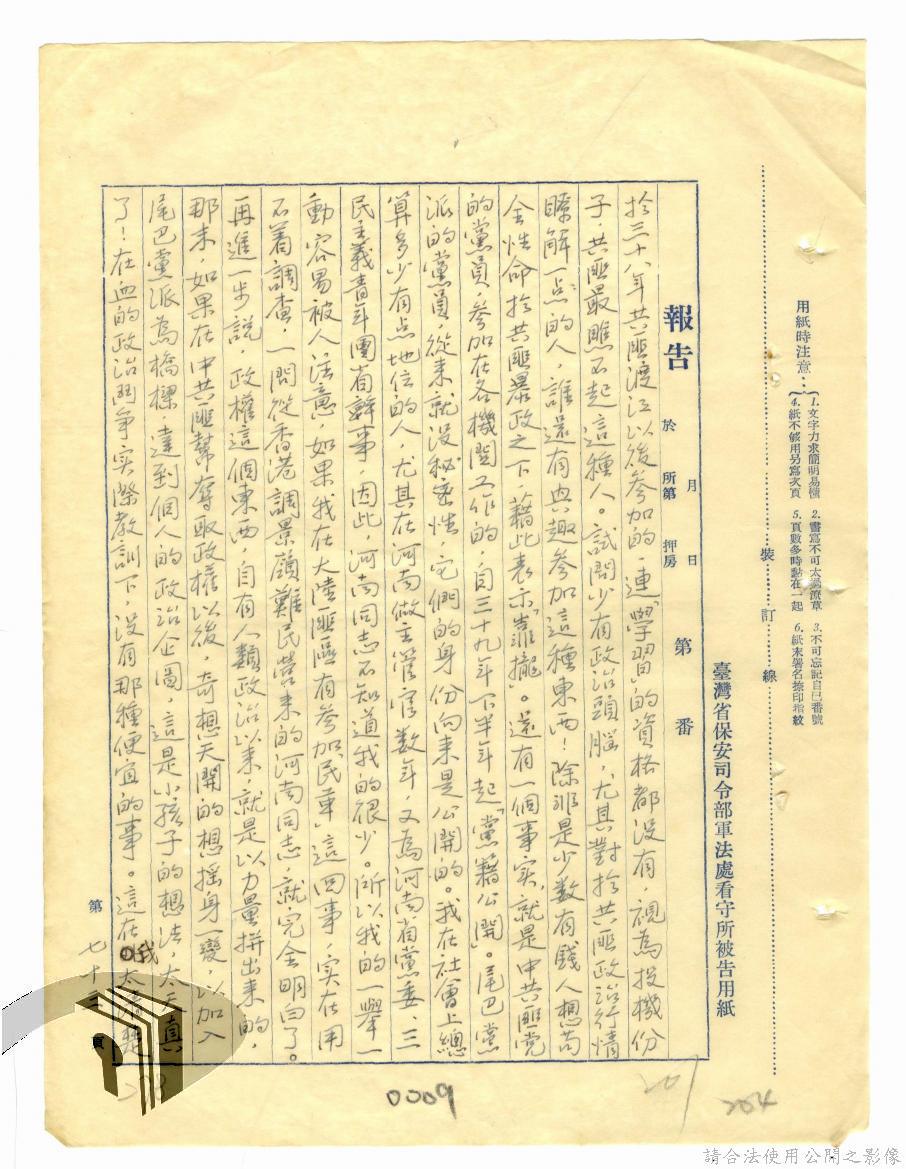 用紙時注意：
1.文字力求簡明易懂 2.書寫不可太過潦草 3.不可忘記自己番號
4.紙不够用另寫次頁 5.頁數多時黏在一起 6.紙末署名捺印指紋
裝 訂 線
臺灣省保安司令部軍法處看守所被告用紙
報告 於 月 日
所第 押房 第 番
於三十八年共匪渡江以後參加的，連「學習」的資格都没有，視為投機份
子，共匪最瞧不起這種人。試問少有政治頭腦，尤其對於共匪政治行情
瞭解一点的人，誰還有興趣參加這種東西！除非是少數有錢人想苟
全性命於共匪暴政之下，藉此表示「靠攏」。還有一個事實，就是中共匪党
的黨員，參加在各機関工作的，自三十九年下半年起「黨籍公開」。尾巴黨
派的黨員，從來就没秘密性，它們的身份向来是公開的。我在社會上總
算多少有点地位的人，尤其在河南做主管官數年，又為河南省黨委、三
民主義青年團省幹事，因此，河南同志不知道我的很少。所以我的一舉一
動容易被人注意，如果我在大陸匪區有參加「民革」這回事，实在用
不着調查，一問從香港調景嶺難民營来的河南同志，就完全明白了。
再進一步説，政權這個東西，自有人類政治以来，就是以力量拼出来的，
那末，如果在中共匪幫奪取政權以後，奇想天開的想摇身一變，以加入
尾巴黨派為橋樑，達到個人的政治企圖，這是小孩子的想法，太天真
了！在血的政治鬥爭实際教訓下，没有那種便宜的事。這在我太清楚
第 七十三 頁
0009
201
204
請合法使用公開之影像